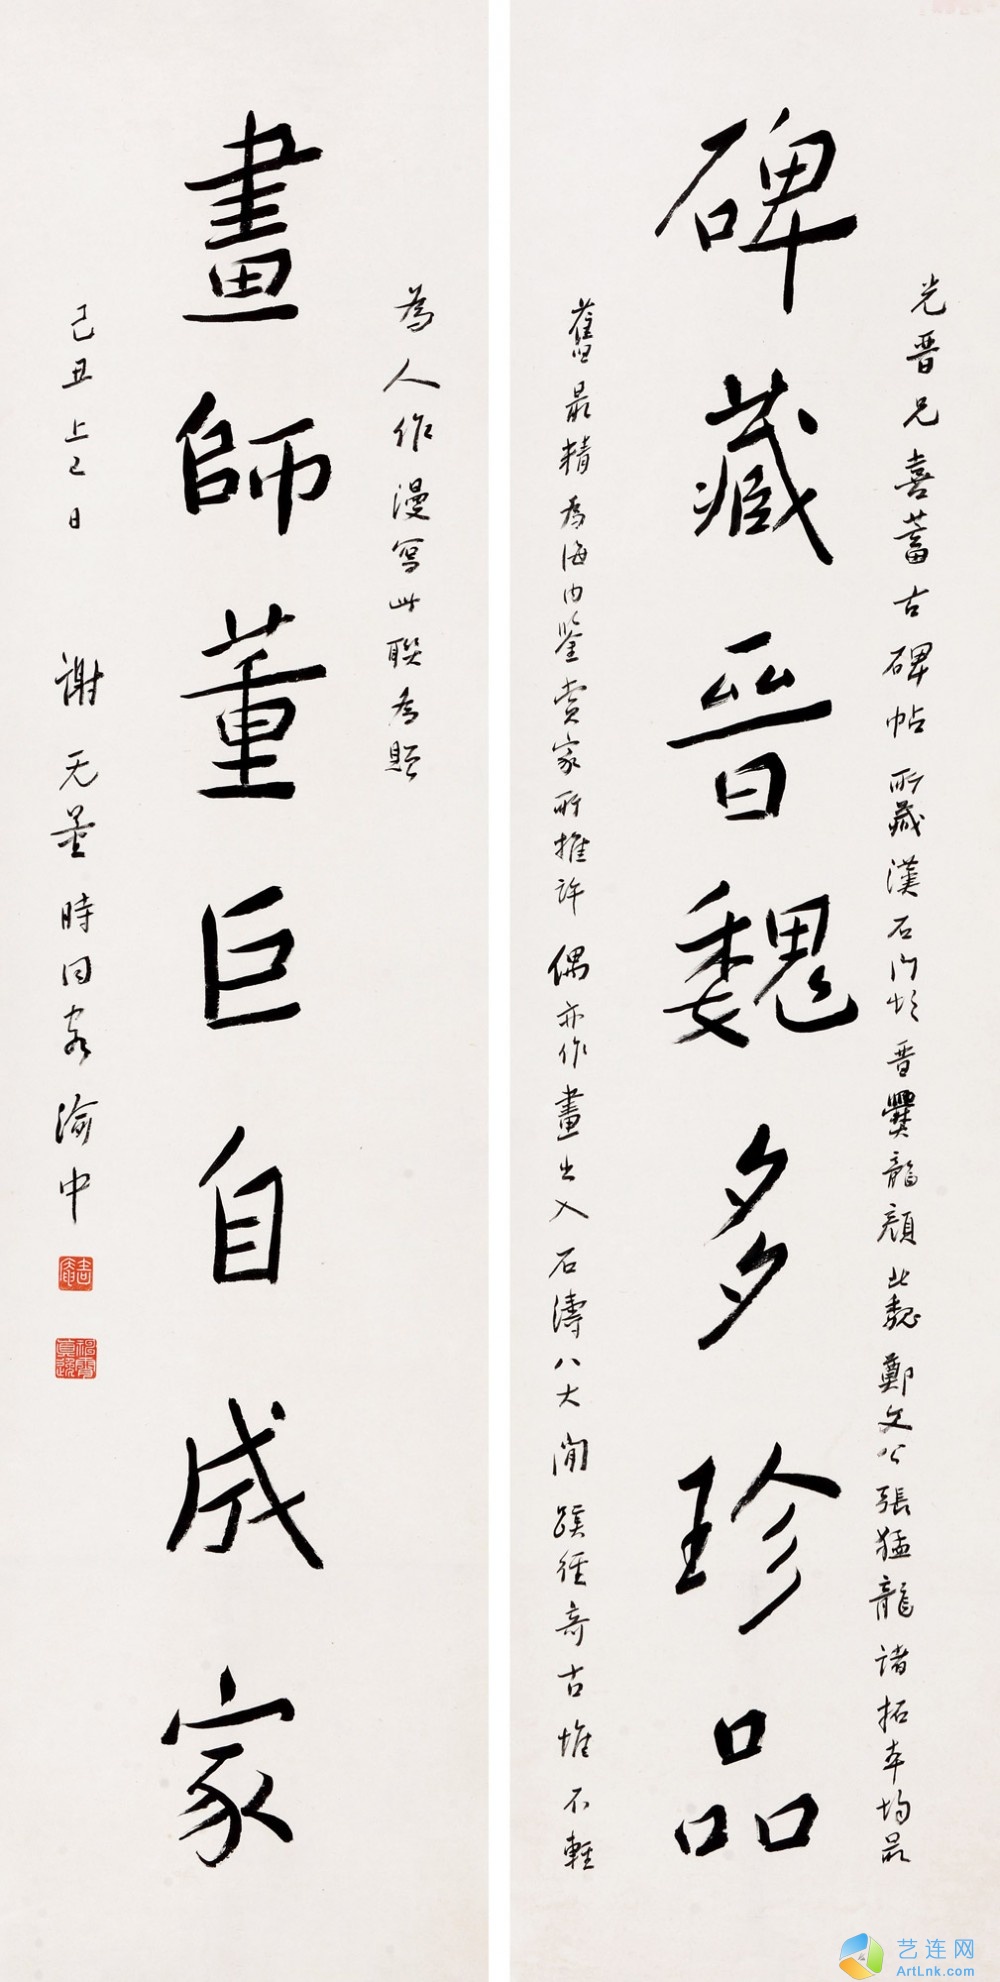 碑藏晉魏多珍品
光晋兄喜蓄古碑帖所藏漢石门颂晋爨龍顔北魏鄭文公張猛龍诸拓本均最
舊最精为海内鉴賞家所推許偶亦作畫出入石濤八大間蹊徑奇古惟不輕
畫師董巨自成家
為人作漫寫此聯为贈
己丑上巳日
谢无量時同客渝中
艺连网
ArtLnk.com